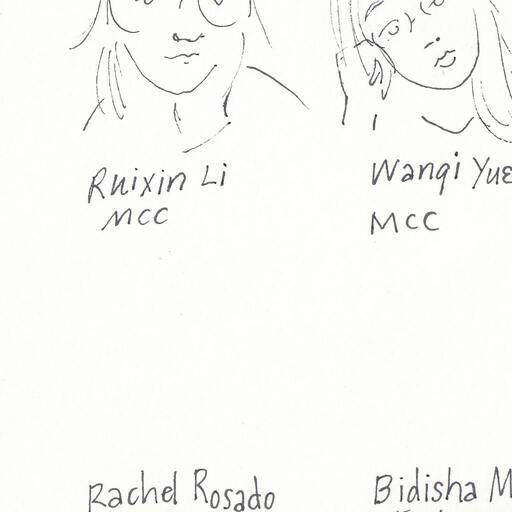 Ruixin Li
MCC
Wanqi Yue
MCC
Rachel Rosado
Bidisha M